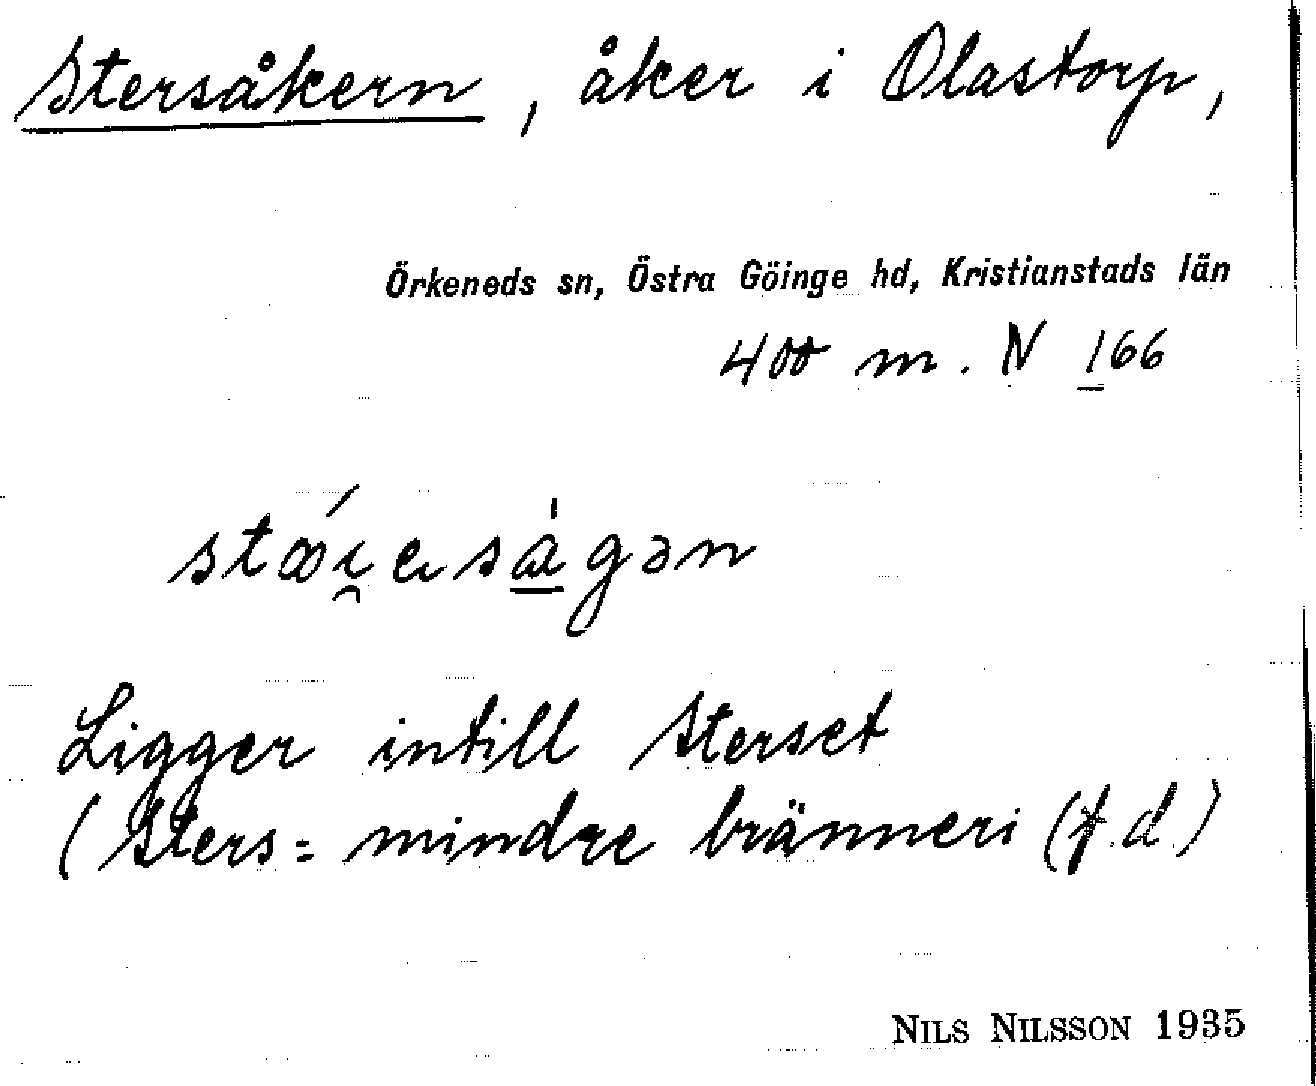 Stersåkern, åker i Olastorp,
Örkeneds sn, Östra Göinge hd, Kristianstads län
400 m. N 166
Ligger intill Sterset
(Sters = mindre bränneri (f.d.)
NILS NILSSON 1935